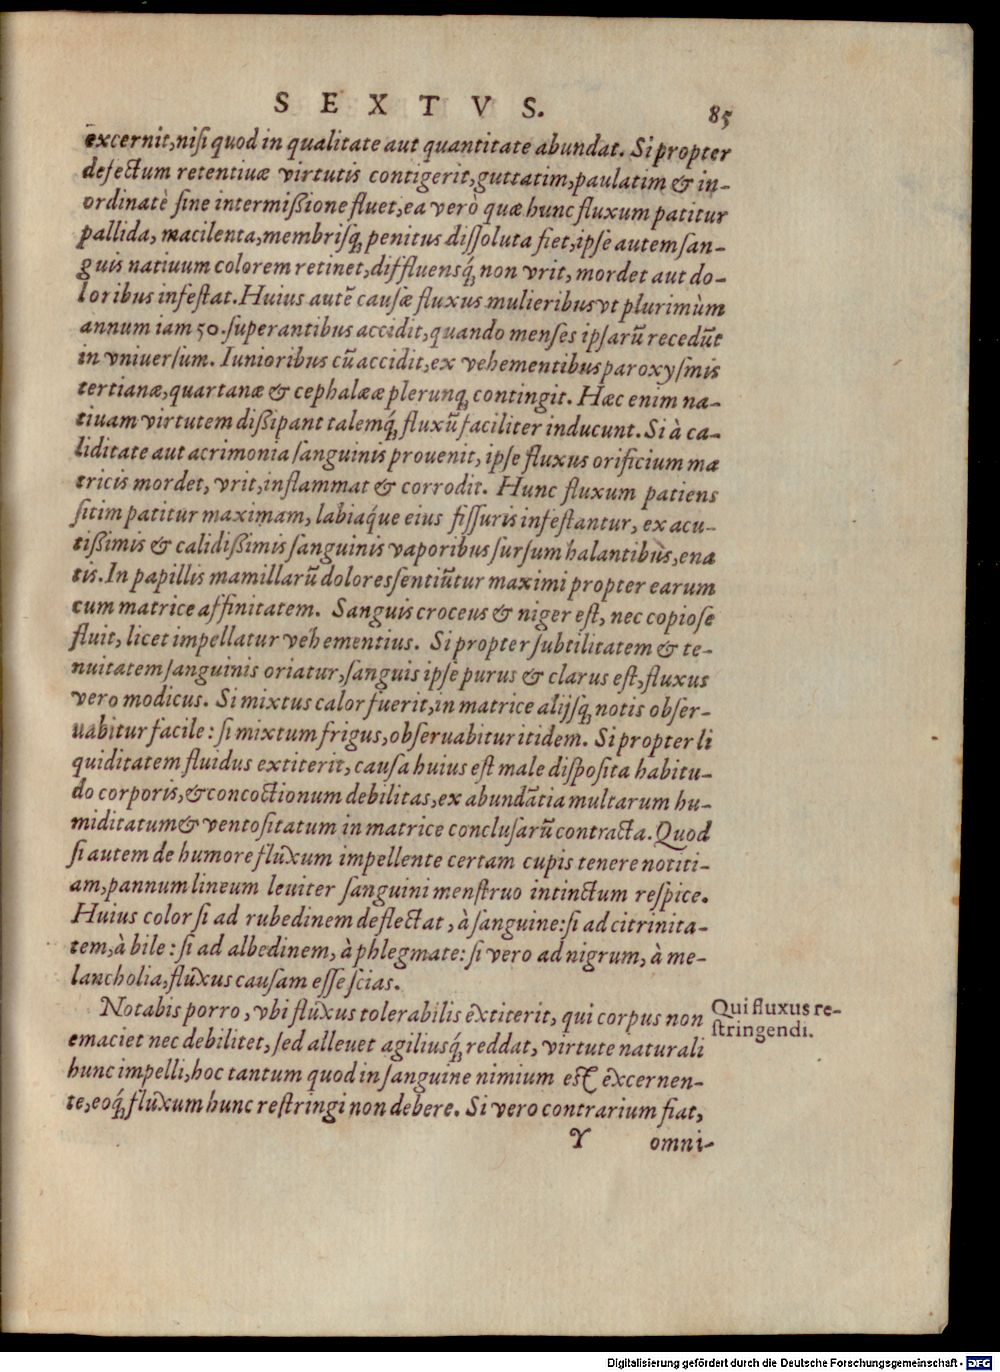 SEXTVS. 85
excernit, nisi quod in qualitate aut quantitate abundat. Si propter
defectum retentiuæ virtutis contigerit, guttatim, paulatim & in-
ordinatè sine intermißione fluet, ea verò quæ hunc fluxum patitur
pallida, macilenta, membrisq́; penitus dissoluta fiet, ipse autem san-
guis natiuum colorem retinet, diffluensq́; non vrit, mordet aut do-
loribus infestat. Huius autē causæ fluxus mulieribus vt plurimùm
annum iam 50. superantibus accidit, quando menses ipsarū recedūt
in vniuersum. Iunioribus cū accidit, ex vehementibus paroxysmis
tertianæ, quartanæ & cephalææ plerunq; contingit. Hæc enim na-
tiuam virtutem dißipant talemq́; fluxū faciliter inducunt. Si à ca-
liditate aut acrimonia sanguinis prouenit, ipse fluxus orificium ma
tricis mordet, vrit, inflammat & corrodit. Hunc fluxum patiens
sitim patitur maximam, labiaq́ue eius fissuris infestantur, ex acu-
tißimis & calidißimis sanguinis vaporibus sursum halantibus, ena
tis. In papillis mamillarū dolores sentiūtur maximi propter earum
cum matrice affinitatem. Sanguis croceus & niger est, nec copiose
fluit, licet impellatur vehementius. Si propter subtilitatem & te-
nuitatem sanguinis oriatur, sanguis ipse purus & clarus est, fluxus
vero modicus. Si mixtus calor fuerit, in matrice alijsq; notis obser-
uabitur facile: si mixtum frigus, obseruabitur itidem. Si propter li
quiditatem fluidus extiterit, causa huius est male disposita habitu-
do corporis, & concoctionum debilitas, ex abundātia multarum hu-
miditatum & ventositatum in matrice conclusarū contracta. Quod
si autem de humore fluxum impellente certam cupis tenere notiti-
am, pannum lineum leuiter sanguini menstruo intinctum respice.
Huius color si ad rubedinem deflectat, à sanguine: si ad citrinita-
tem, à bile: si ad albedinem, à phlegmate: si vero ad nigrum, à me-
lancholia, fluxus causam esse scias.
Notabis porro, vbi fluxus tolerabilis extiterit, qui corpus non
emaciet nec debilitet, sed alleuet agiliusq́; reddat, virtute naturali
hunc impelli, hoc tantum quod in sanguine nimium est excernen-
te, eoq́; fluxum hunc restringi non debere. Si vero contrarium fiat,
Qui fluxus re-
stringendi.
Y omni-
Digitalisierung gefördert durch die Deutsche Forschungsgemeinschaft - DFG